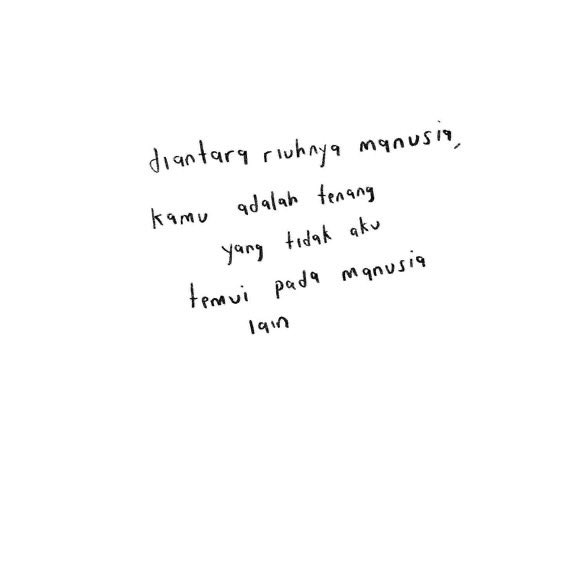 diantara riuhnya manusia,
kamu adalah tenang
yang tidak aku
temui pada manusia
lain